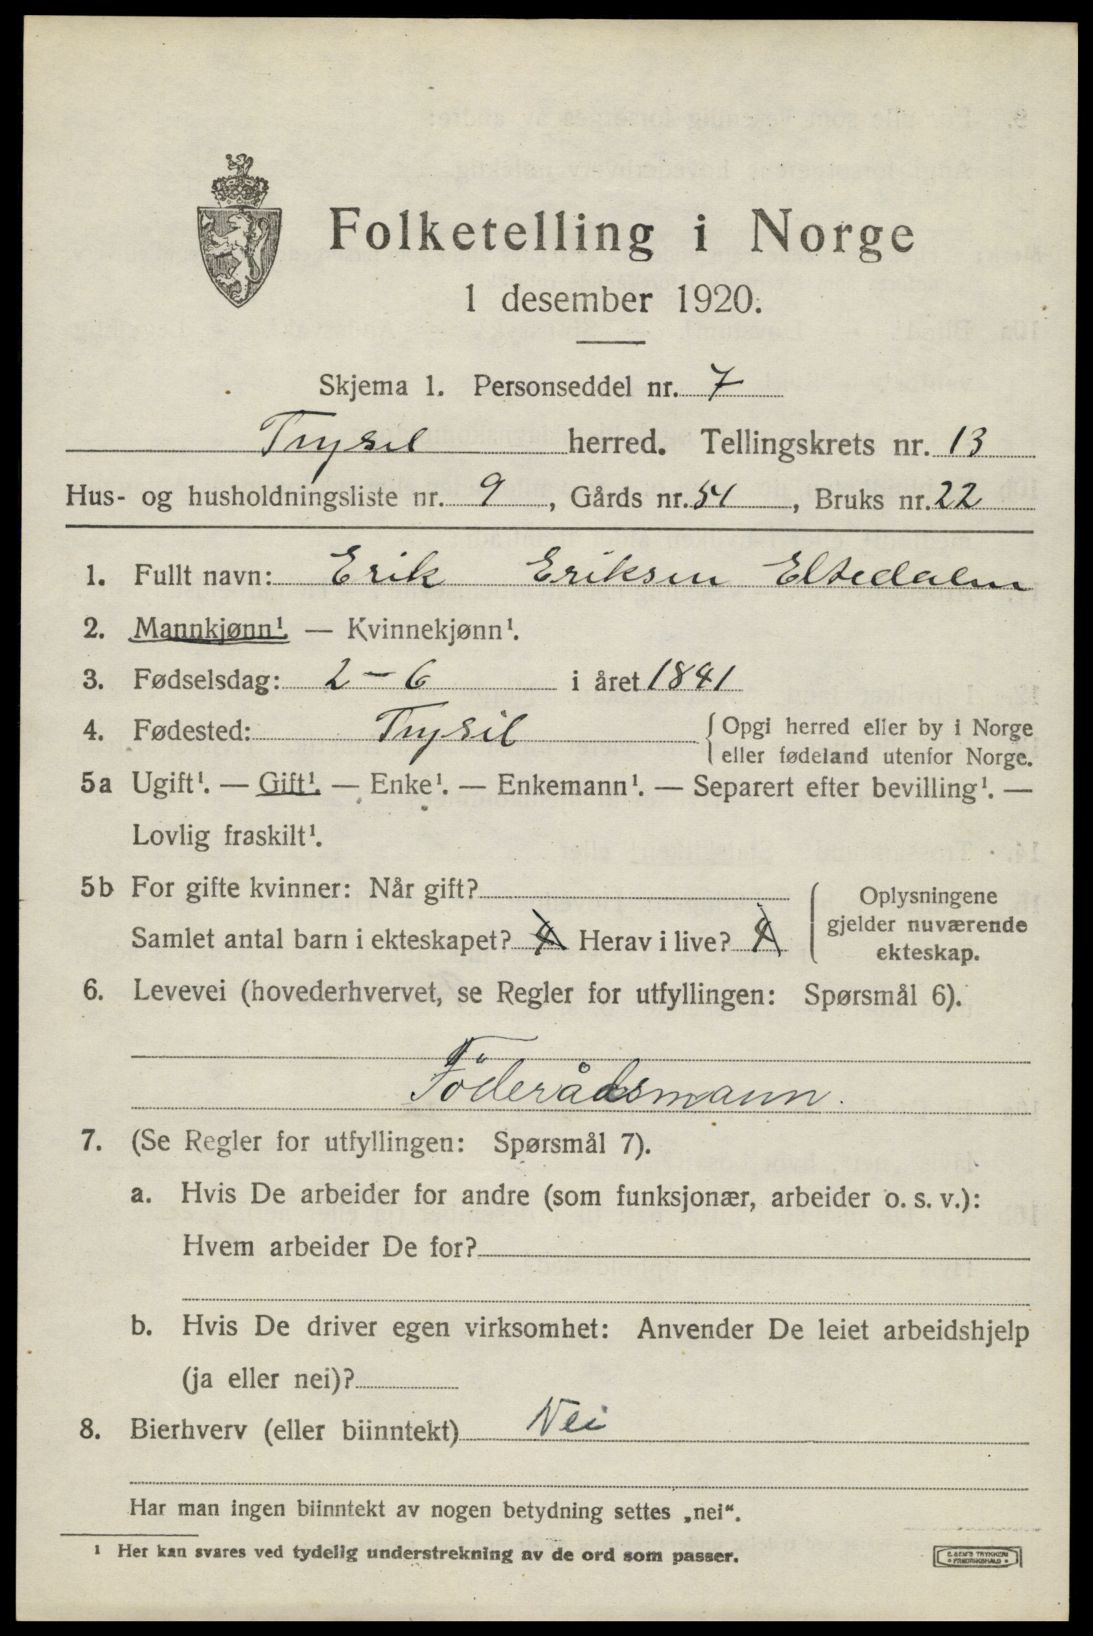 Folketelling i Norge
1 desember 1920.
Skjema 1. Personseddel nr. 7
Trysil herred. Tellingskrets nr. 13
Hus- og husholdningsliste nr. 9, Gårds nr. 54, Bruks nr. 22
1. Fullt navn: Erik Eriksen Eltedalen
2. Mannkjønn¹. — Kvinnekjønn¹.
3. Fødselsdag: 2-6 i året 1841
4. Fødested: Trysil { Opgi herred eller by i Norge
eller fødeland utenfor Norge.
5a Ugift¹. — Gift¹. — Enke¹. — Enkemann¹. — Separert efter bevilling¹. —
Lovlig fraskilt¹.
5b For gifte kvinner: Når gift? { Oplysningene
gjelder nuværende
ekteskap.
Samlet antal barn i ekteskapet? Herav i live?
6. Levevei (hovederhvervet, se Regler for utfyllingen: Spørsmål 6).
Föderådsmann.
7. (Se Regler for utfyllingen: Spørsmål 7).
a. Hvis De arbeider for andre (som funksjonær, arbeider o. s. v.):
Hvem arbeider De for?
b. Hvis De driver egen virksomhet: Anvender De leiet arbeidshjelp
(ja eller nei)?
8. Bierhverv (eller biinntekt) Nei
Har man ingen biinntekt av nogen betydning settes „nei“.
¹ Her kan svares ved tydelig understrekning av de ord som passer.